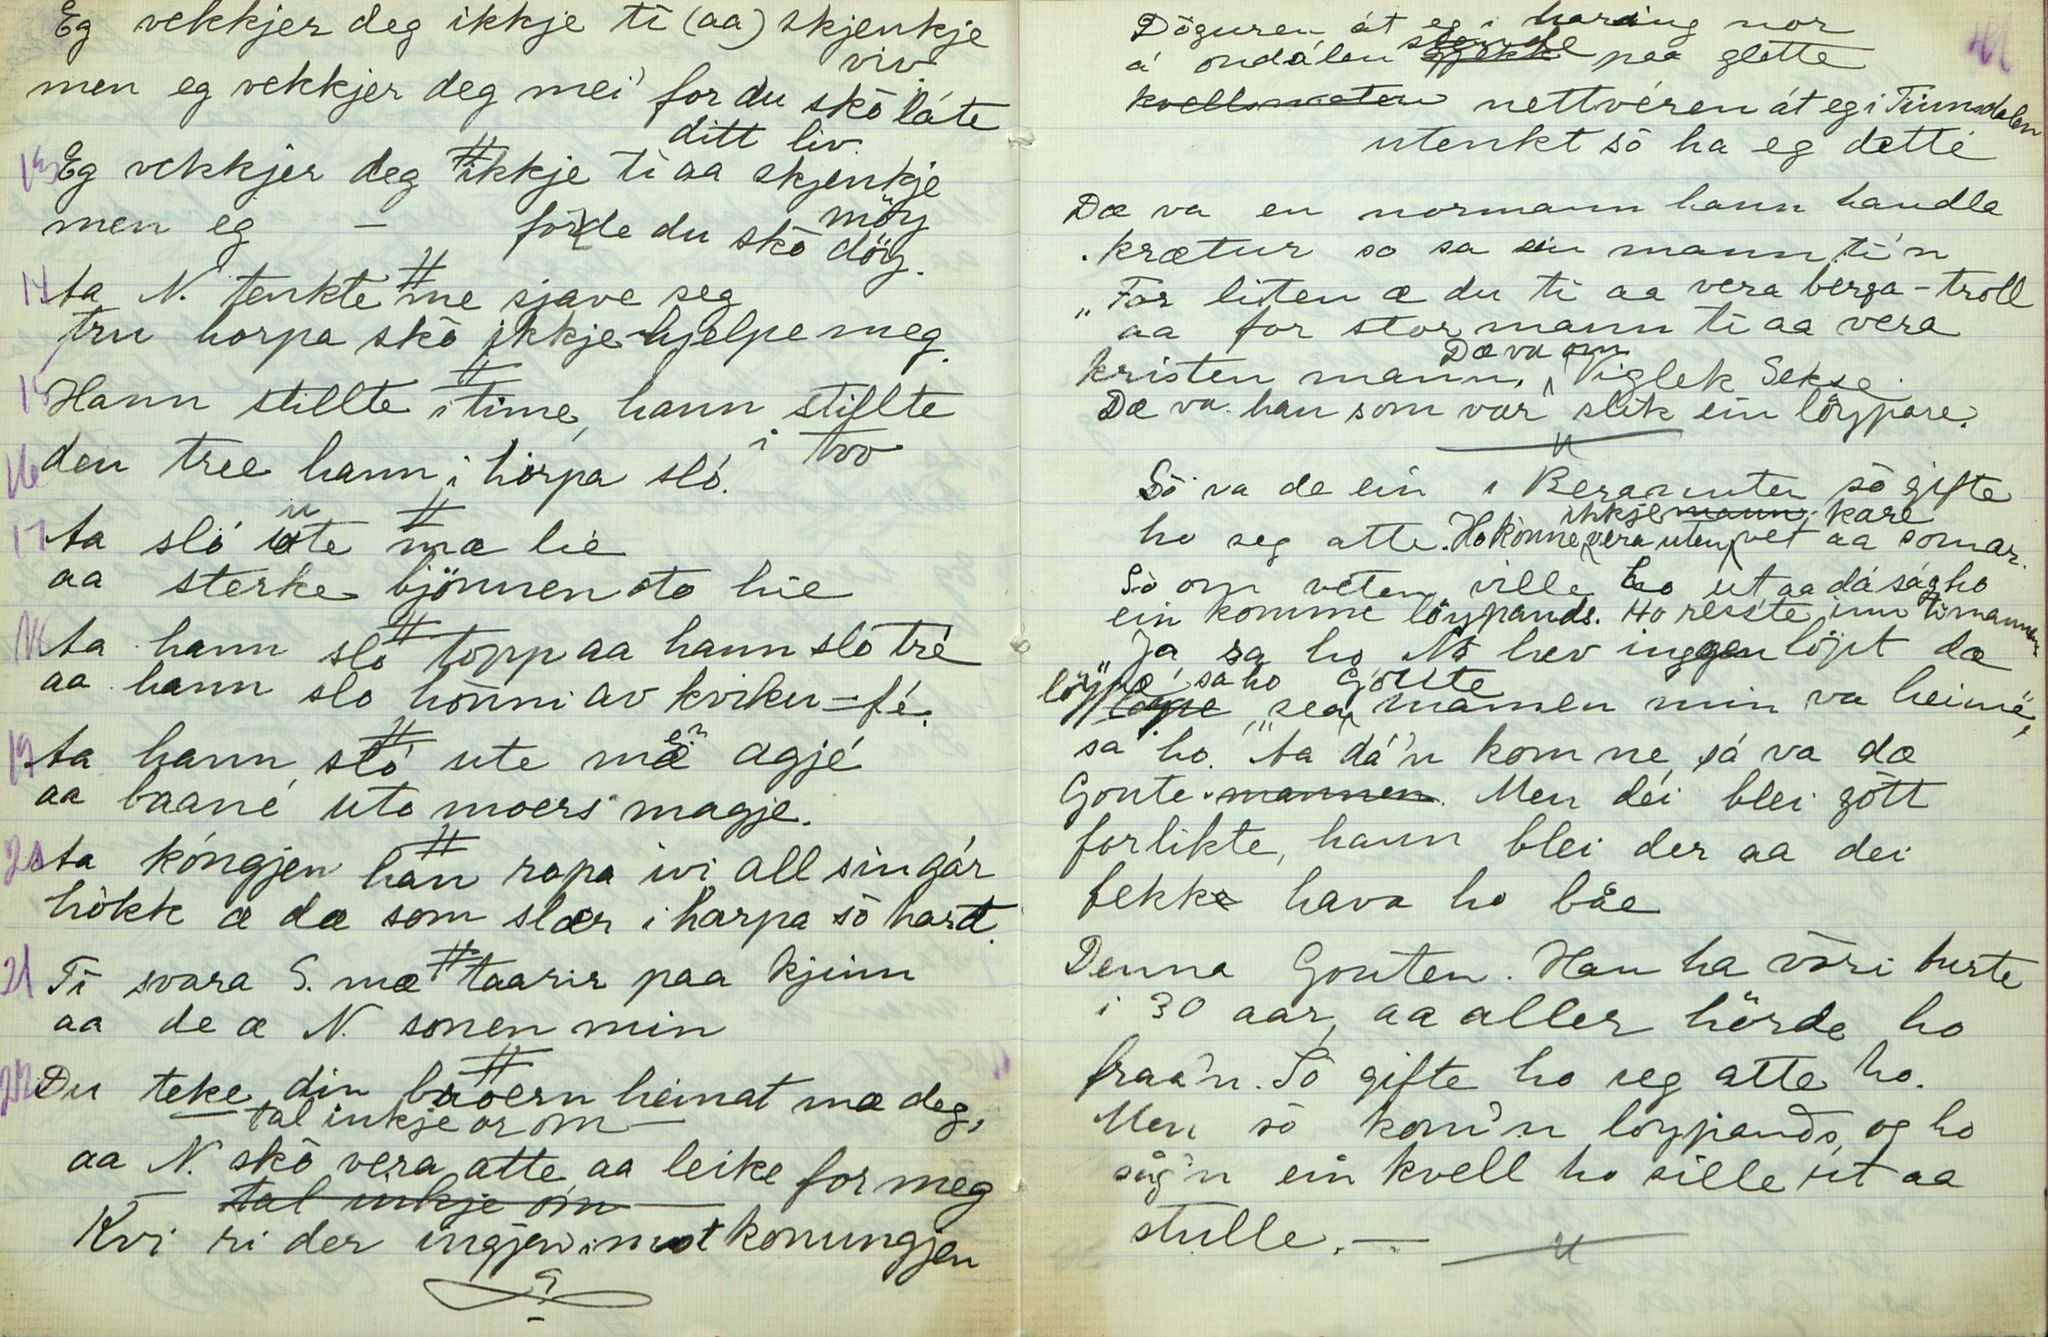 Eg vekkjer deg ikkje ti (aa) skjenkje
viv
men eg vekkjer deg mei' for du skò láte
ditt liv.
13 Eg vekkjer deg ikkje ti aa skjenkje
möy
men eg – forde du skò döy.
14 ta N. tenkte me sjave seg
tru horpa skò ikkje hjelpe meg.
15 Hann stillte i time, hann stillte
i tvo
16 den tree hann i hörpa sló.
17 ta sló ute mæ lie
aa sterke bjönnen oto hie
18 ta hann slo topp aa hann slo tré
aa hann slo honni av kviku-fé.
19 ta hann sló ute mæ ein agjé
aa baané uto moers magje.
20 ta kóngjen han ropa ivi all sin gár
hòkk æ dæ som slær i harpa sò hart.
21 Ti svara S. mæ taarir paa kjinn
aa de æ N. sonen min
22 Du teke din broern heimat mæ deg,
— tal inkje or om —
aa N. skò vera atte aa leike for meg
— tal inkje om —
Kvi ri der ingjen imot konungjen

Döguren át eg i haring nor
á ondálen stende gjekk paa glette
kvellsmaten nettvéren át eg i Tinnsdalen
utenkt sò ha eg detté
Dæ va en normann hann handla
krætur so sa ein mann ti'n
"For liten æ du ti aa vera berga-troll
aa for stor mann ti aa vera
kristen mann. Dæ va om Viglek Sekse.
Dæ va han som var slik ein löypare.
Sò va de ein i sò gifte
ho seg atte. Ho konne ikkje mann kare
vera uten vet aa somar.
So om veten ville ho ut aa dá ság ho
ein komme löypands. Ho reiste inn ti mannen
"Ja sa ho No hev inggen löjpt dæ
löyp æ sa ho Goute
löype "sea mamen min va heimé",
sa ho. ta dá'n kom ne, sá va dæ
Goute mannen. Men déi blei gòtt
forlikte, hann blei der aa dei
fekke hava ho båe
Denna Gouten. Han ha vòri burte
i 30 aar, aa aller hörde ho
fraa'n. Sò gifte ho seg atte ho.
Men sò kom'n loypands, og ho
såg'n ein kvell ho sille ut aa
stulle. —